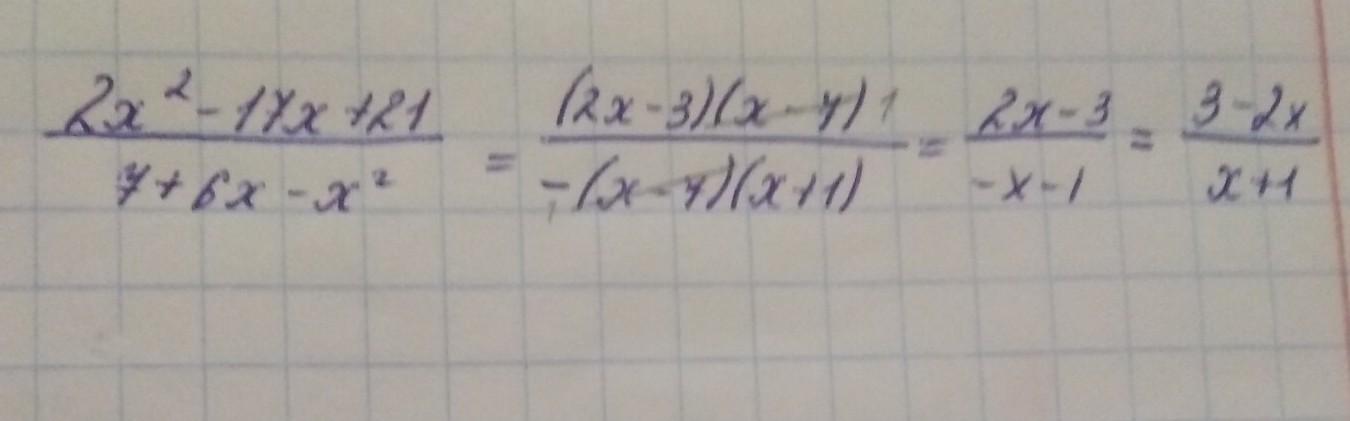 (2x² - 17x + 21)/(7 + 6x - x²) = ((2x - 3)(x - 7))/(-(x - 7)(x + 1)) = (2x - 3)/(-x - 1) = (3 - 2x)/(x + 1)